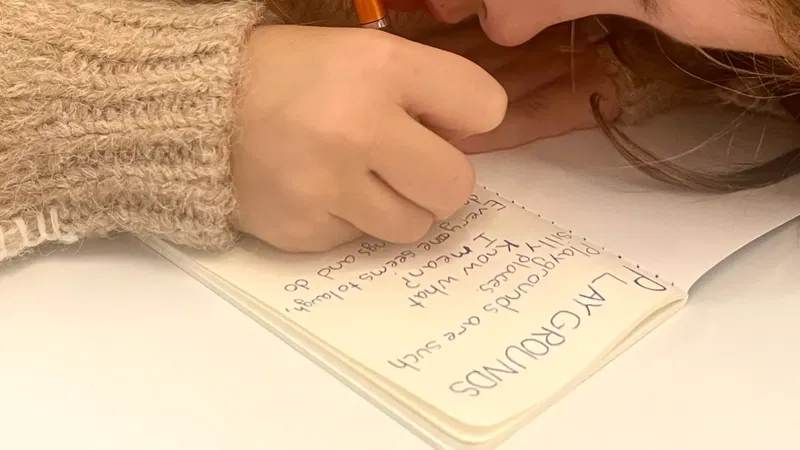 PLAYGROUNDS
Playgrounds are such
silly places.
Know what
I mean?
Everyone seems to laugh,
and do